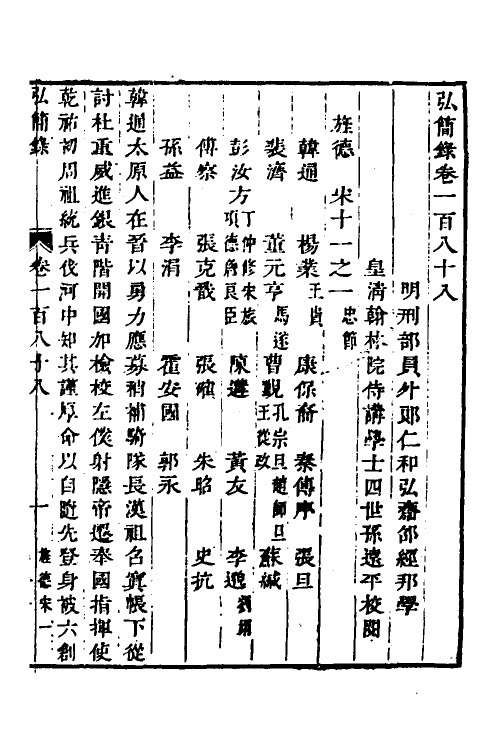 弘簡錄卷一百八十八
明刑部員外郎仁和弘齋邵經邦學
皇清翰林院侍講學士四世孫遠平校閱
旌德　宋十一之一忠節
韓通　楊業王貴　康保裔　秦傳序　張旦
裴濟　董元亨馬遂　曹覲孔宗旦趙師旦王從政　蘇緘
彭汝方丁仲修宋旅項德詹良臣　陳遘　黃友　李邈劉翊
傅察　張克戩　張確　朱昭　史抗
孫益　李涓　霍安國　郭永
韓通太原人在晉以勇力應募稍補騎隊長漢祖名寘帳下從
討杜重威進銀青階開國加檢校左僕射隱帝遷奉國指揮使
乾祐初周祖統兵伐河中知其謹厚命以自隨先登身被六創
弘簡錄　卷一百八十八　一　旌德宋一